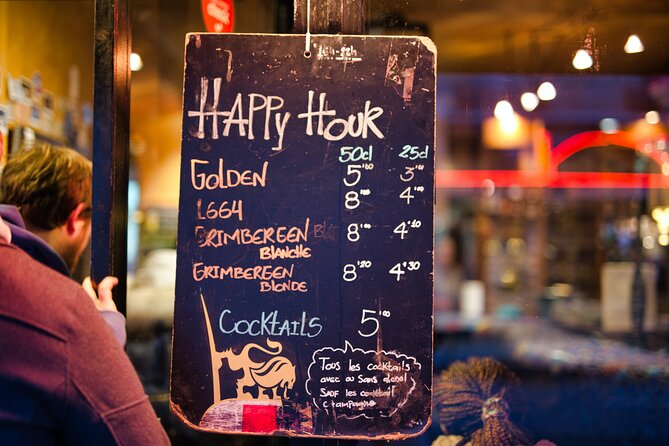 16h-22h
HAPPY HOUR
50cl 25cl
GOLDEN 5'00 3'00
1664 8'00 4'00
GRIMBERGEEN BLANCHE 8'00 4'10
GRIMBERGEEN BLONDE 8'20 4'30
COCKTAILS 5'00
TOUS LES COCKTAILS
AVEC OU SANS ALCOOL
SAUF LES COCKTAIL
CHAMPAGNE